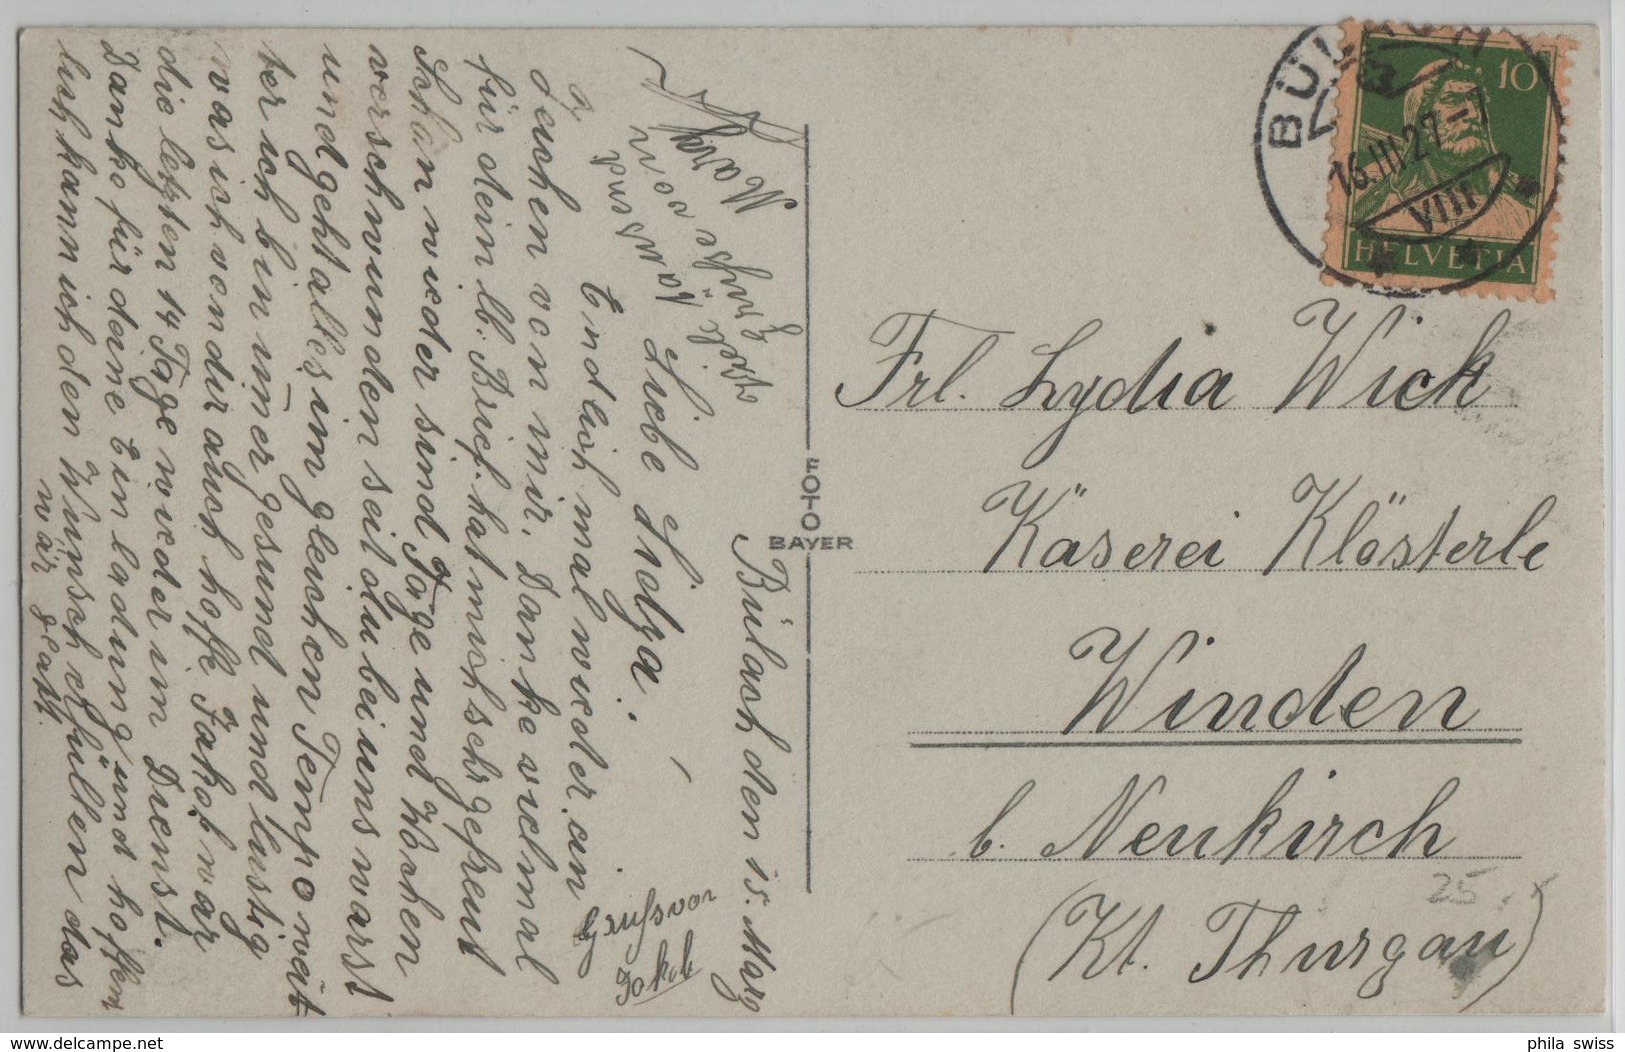 Bülach den 15. März
Liebe Lidya!
Endlich mal wieder ein
Zeichen von mir. Danke vielmal
für dein lb. Brief. hat mich sehr gefreut
Schon wieder sind Tage und Wochen
verschwunden seit du bei uns warst
und geht alles im gleichen Tempo weit
ter ich bin im̅er gesund und lustig
was ich von dir auch hoffe Jakob war
die letzten 14 Tage wieder im Dienst.
Danke für deine Einladung und hoffen
lich kann ich den Wunsch erfüllen das
wär glatt.
Viele Grüsse
von
Vater und
Gruss von
Jakob
FOTO
BAYER
BÜLACH
16.III.27-7
VIII
10
HELVETIA
Frl. Lydia Wick
Käserei Klösterle
Winden
b. Neukirch
(Kt. Thurgau)
25.
phila swiss